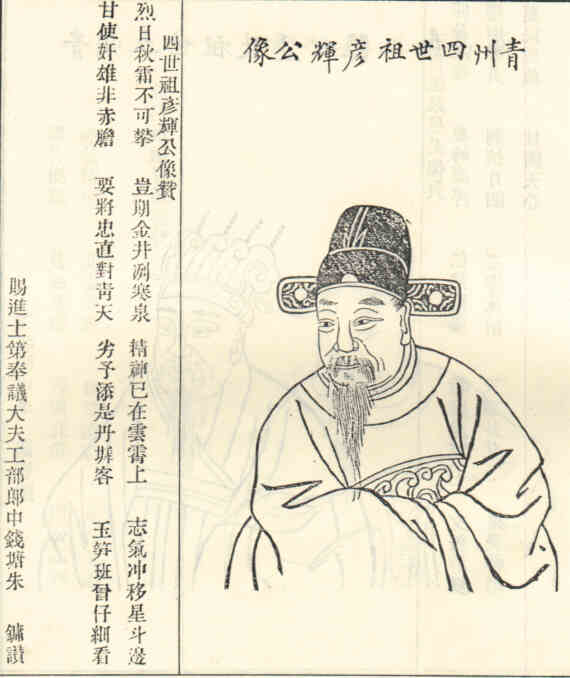 青州四世祖彦輝公像
四世祖彦輝公像贊
烈日秋霜不可攀 豈期金井冽寒泉 精神已在雲霄上 志氣冲移星斗邊
甘使奸雄非赤膽 要將忠直對青天 劣予添是丹墀客 玉笋班仔細看
賜進士第奉議大夫工部郎中錢塘朱 鏞讃